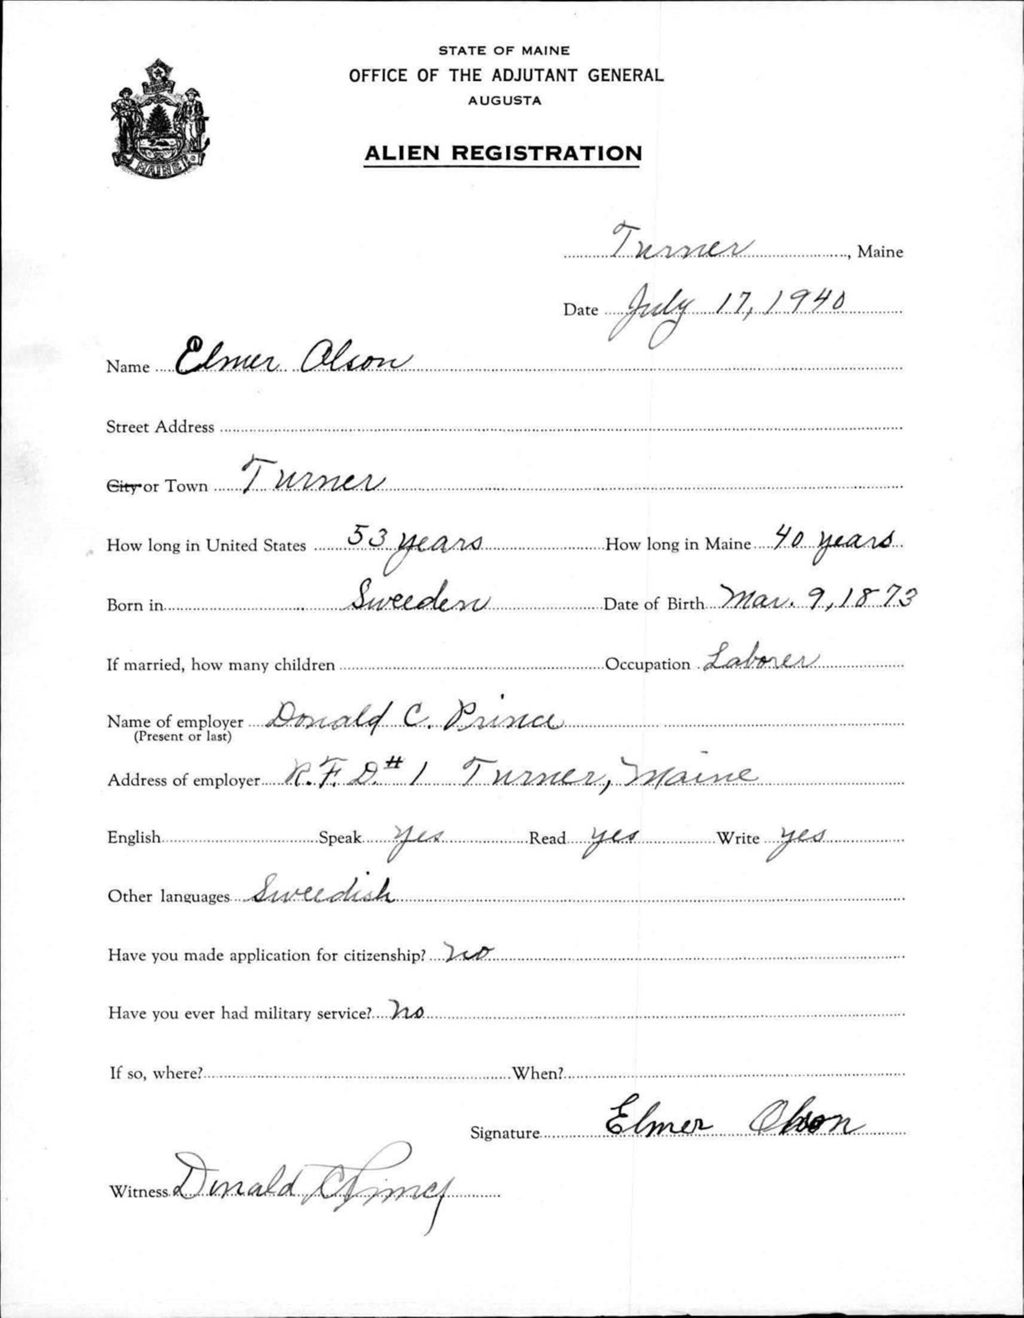 STATE OF MAINE
OFFICE OF THE ADJUTANT GENERAL
AUGUSTA
ALIEN REGISTRATION
MAINE
Turner, Maine
Date July 17, 1940
Name Elmer Olson
Street Address
City or Town Turner
How long in United States 53 years How long in Maine 40 years
Born in Sweeden Date of Birth Mar. 9, 1873
If married, how many children Occupation Laborer
Name of employer Donald C. Prince
(Present or last)
Address of employer R.F.D. #1 Turner, Maine
English Speak yes Read yes Write yes
Other languages Sweedish
Have you made application for citizenship? no
Have you ever had military service? no
If so, where? When?
Signature Elmer Olson
Witness Donald C Prince